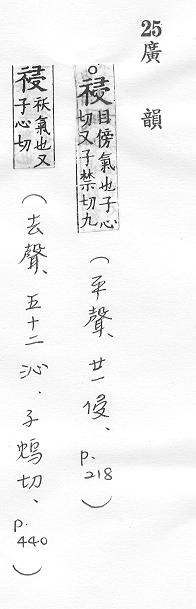 25 廣韻
○祲日傍氣也子心切又子禁切九（平聲、廿一侵、p.218）
祲祅氣也又子心切（去聲、五十二沁、子鴆切、p.440）